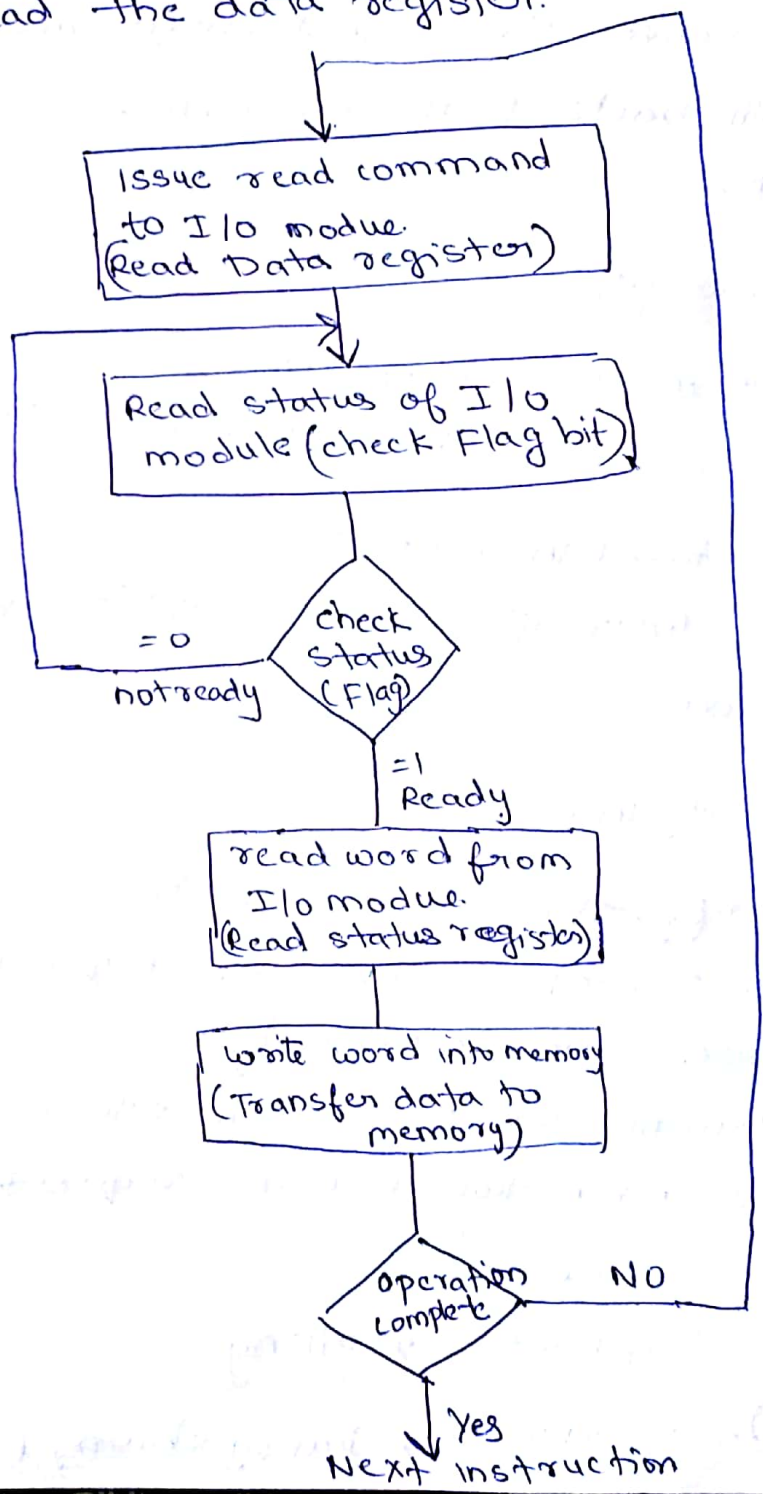 the data register.
Issue read command
to I/o modue.
(Read Data register)
Read status of I/o
module (check Flag bit)
check
status
(Flag)
= 0
not ready
=1
Ready
read word from
I/o modue.
(Read status register)
write word into memory
(Transfer data to
memory)
operation
complete
NO
Yes
Next instruction